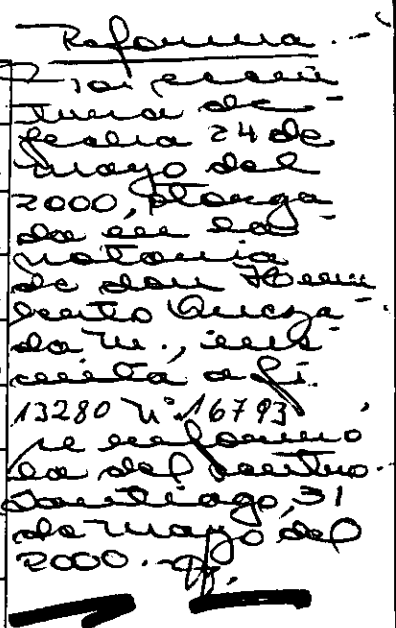 Reforma.-
Por escri-
tura de
fecha 24 de
mayo del
2000, otorga-
da en la
notaria
de don Humi-
berto Queza-
da M., ins-
crita a fs.
13280 N° 16793
se reformó
la del centro.
Santiago, 31
de mayo del
2000.-